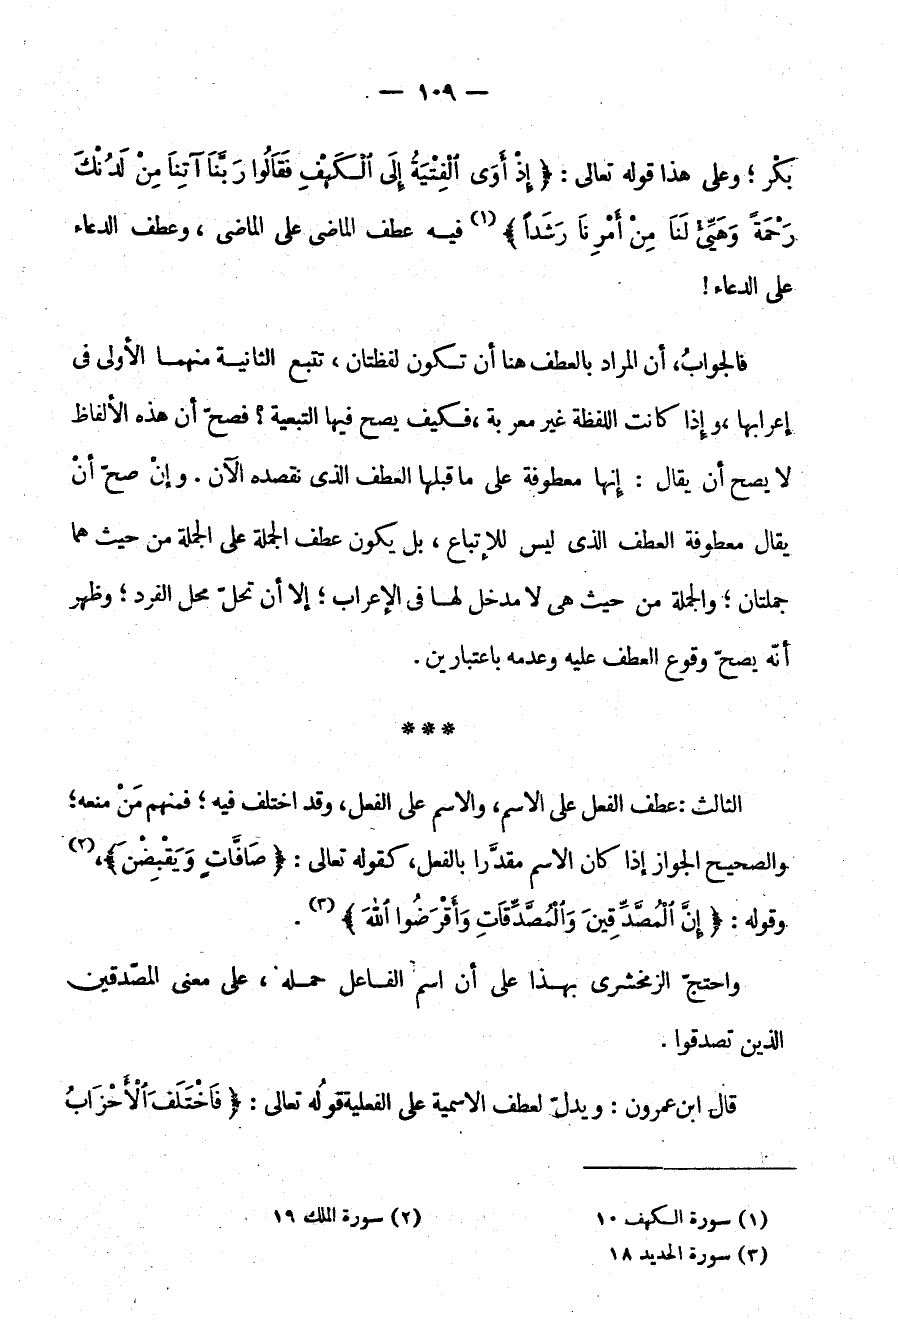 — ١٠٩ —
بكْر ؛ وعلى هذا قوله تعالى : ﴿ إِذْ أَوَى ٱلْفِتْيَةُ إِلَى ٱلْكَهْفِ فَقَالُوا رَبَّنَا آتِنَا مِنْ لَدُنْكَ
رَحْمَةً وَهَيِّئْ لَنَا مِنْ أَمْرِنَا رَشَداً ﴾ (١) فيه عطف الماضى على الماضى ، وعطف الدعاء
على الدعاء !
فالجوابُ، أن المراد بالعطف هنا أن تكون لفظتان ، تتبع الثانية منهما الأولى فى
إعرابها ، وإذا كانت اللفظة غير معربة ، فكيف يصح فيها التبعية ؟ فصحّ أن هذه الألفاظ
لا يصح أن يقال : إنها معطوفة على ما قبلها العطف الذى نقصده الآن . وإنْ صحّ أنْ
يقال معطوفة العطف الذى ليس للإتباع ، بل يكون عطف الجملة على الجملة من حيث هما
جملتان ؛ والجملة من حيث هى لا مدخل لها فى الإعراب ؛ إلا أن تحلّ محل الفرد ؛ وظهر
أنّه يصحّ وقوع العطف عليه وعدمه باعتبارين .
* * *
الثالث : عطف الفعل على الاسم، والاسم على الفعل، وقد اختلف فيه ؛ فمنهم مَنْ منعه؛
والصحيح الجواز إذا كان الاسم مقدَّرا بالفعل، كقوله تعالى : ﴿ صَافَّاتٍ وَيَقْبِضْنَ ﴾، (٢)
وقوله : ﴿ إِنَّ ٱلْمُصَّدِّقِينَ وَٱلْمُصَّدِّقَاتِ وَأَقْرَضُوا ٱللهَ ﴾ (٣) .
واحتجّ الزمخشرى بهذا على أن اسم الفاعل حمله ، على معنى المصّدقين
الذين تصدقوا .
قال ابن عمرون : ويدلّ لعطف الاسمية على الفعلية قولُه تعالى : ﴿ فَاخْتَلَفَ ٱلْأَحْزَابُ
(١) سورة الكهف ١٠
(٢) سورة الملك ١٩
(٣) سورة الحديد ١٨